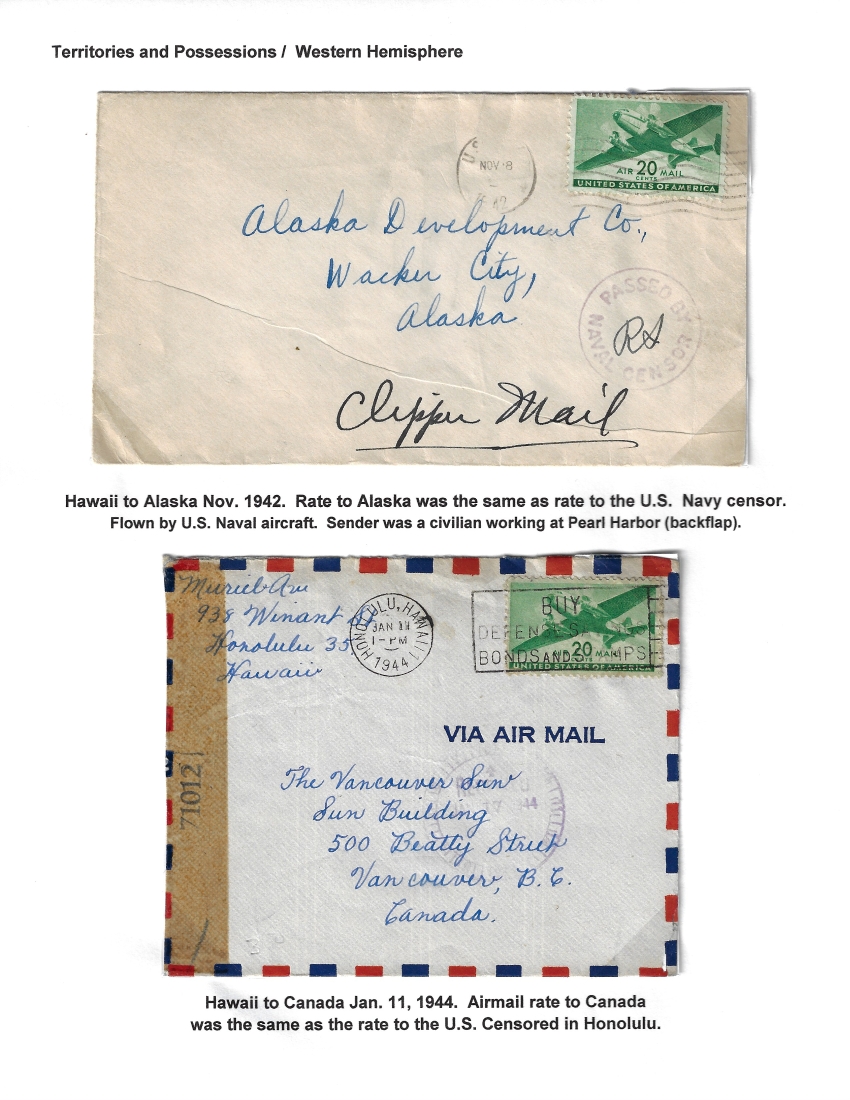 Territories and Possessions / Western Hemisphere
U.S.
NOV 8
42
AIR 20 MAIL
CENTS
UNITED STATES OF AMERICA
Alaska Development Co.,
Wacker City,
Alaska
PASSED BY
NAVAL CENSOR
RS
Clipper Mail
Hawaii to Alaska Nov. 1942. Rate to Alaska was the same as rate to the U.S. Navy censor.
Flown by U.S. Naval aircraft. Sender was a civilian working at Pearl Harbor (backflap).
938 Winant
Honolulu 35
Hawaii
HONOLULU, HAWAII
JAN 11
1 - PM
1944
BUY
DEFENSE S
BONDS AND S IPS
20 MAIL
UNITED STATES OF AMERICA
VIA AIR MAIL
71012
The Vancouver Sun
Sun Building
500 Beatty Street
Vancouver, B. C.
Canada.
Hawaii to Canada Jan. 11, 1944. Airmail rate to Canada
was the same as the rate to the U.S. Censored in Honolulu.